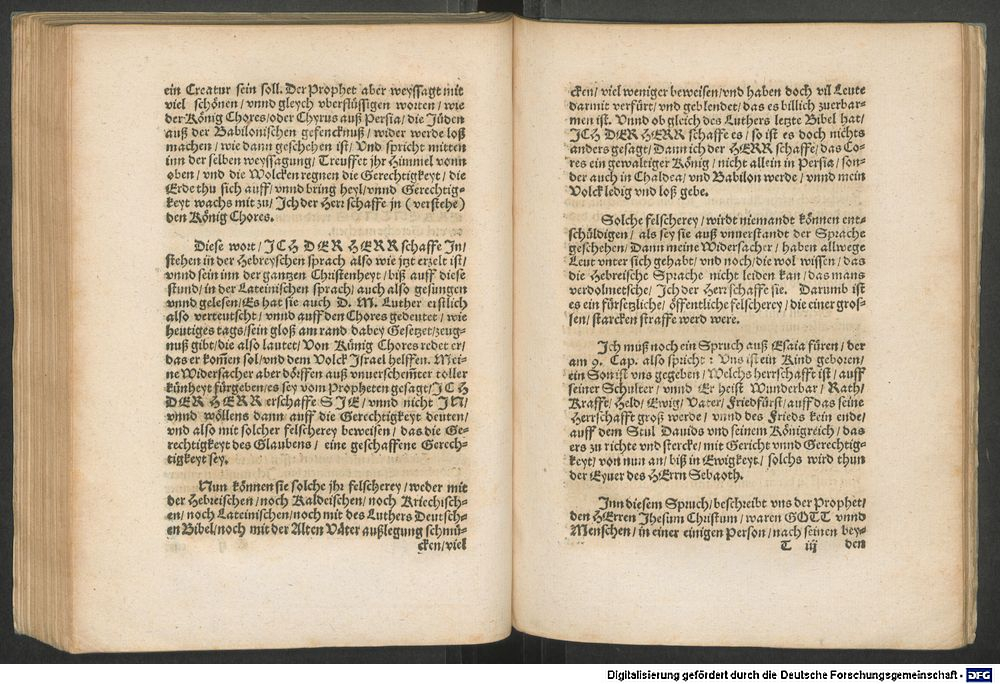 ein Creatur sein soll. Der Prophet aber weyssagt mit
viel schönen/ vnnd gleych vberflüssigen worten/ wie
der König Chores/oder Chyrus auß Persia/ die Jüden
auß der Babilonischen gefencknuß/ wider werde loß
machen/ wie dann geschehen ist/ Vnd spricht mitten
inn der selben weyssagung/ Treuffet jhr Himmel vonn
oben/ vnd die Wolcken regnen die Gerechtigkeyt/ die
Erde thu sich auff/ vnnd bring heyl/ vnnd Gerechtig-
keyt wachs mit zu/ Ich der Herr schaffe jn (verstehe)
den König Chores.
Diese wort/ ICH DER HERR schaffe In/
stehen in der Hebreyschen sprach also wie jtzt erzelt ist/
vnnd sein inn der gantzen Christenheyt/ biß auff diese
stund/ in der Lateinischen sprach/ auch also gesungen
vnnd gelesen/ Es hat sie auch D. M. Luther erstlich
also verteutscht/ vnnd auff den Chores gedeutet/ wie
heutiges tags/ sein gloß am rand dabey Gesetzet/ zeug-
nuß gibt/ die also lautet/ Von Künig Chores redet er/
das er kom̃en sol/ vnd dem Volck Israel helffen. Mei-
ne Widersacher aber dörffen auß vnuerschem̃ter toller
künheyt fürgeben/ es sey vom Propheten gesagt/ ICH
DER HERR erschaffe SIE/ vnnd nicht IN/
vnnd wöllens dann auff die Gerechtigkeyt deuten/
vnd also mit solcher felscherey beweisen/ das die Ge-
rechtigkeyt des Glaubens/ eine geschaffene Gerech-
tigkeyt sey.
Nun können sie solche jhr felscherey/ weder mit
der Hebreischen/ noch Kaldeischen/ noch Kriechisch-
en/ noch Lateinischen/ noch mit des Luthers Deutsch-
en Bibel/ noch mit der Alten Väter außlegung schmü-
cken/ viel
cken/ viel weniger beweisen/ vnd haben doch vil Leute
darmit verfürt/ vnd geblendet/ das es billich zuerbar-
men ist. Vnnd ob gleich des Luthers letzte Bibel hat/
ICH DER HERR schaffe es/ so ist es doch nichts
anders gesagt/ Dann ich der HERR schaffe/ das Co-
res ein gewaltiger König/ nicht allein in Persia/ son-
der auch in Chaldea/ vnd Babilon werde/ vnnd mein
Volck ledig vnd loß gebe.
Solche felscherey/ wirdt niemandt können ent-
schüldigen/ als sey sie auß vnnerstandt der Sprache
geschehen/ Dann meine Widersacher/ haben allwege
Leut vnter sich gehabt/ vnd noch/ die wol wissen/ das
die Hebreische Sprache nicht leiden kan/ das mans
verdolmetsche/ Ich der Herr schaffe sie. Darumb ist
es ein fürsetzliche/ öffentliche felscherey/ die einer gros-
sen/ starcken straffe werd were.
Ich muß noch ein Spruch auß Esaia füren/ der
am 9. Cap. also spricht: Vns ist ein Kind geboren/
ein Son ist vns gegeben/ Welchs herrschafft ist/ auff
seiner Schulter/ vnnd Er heist Wunderbar/ Rath/
Krafft/ Held/ Ewig/ Vater/ Friedfürst/ auff das seine
Herrschafft groß werde/ vnnd des Frieds kein ende/
auff dem Stul Dauids vnd seinem Königreich/ das
ers zu richte vnd stercke/ mit Gericht vnnd Gerechtig-
keyt/ von nun an/ biß in Ewigkeyt/ solchs wird thun
der Eyuer des HErrn Sebaoth.
Inn diesem Spruch/ beschreibt vns der Prophet/
den HErren Jhesum Christum/ waren GOTT vnnd
Menschen/ in einer einigen Person/ nach seinen bey-
T iij den
Digitalisierung gefördert durch die Deutsche Forschungsgemeinschaft - DFG